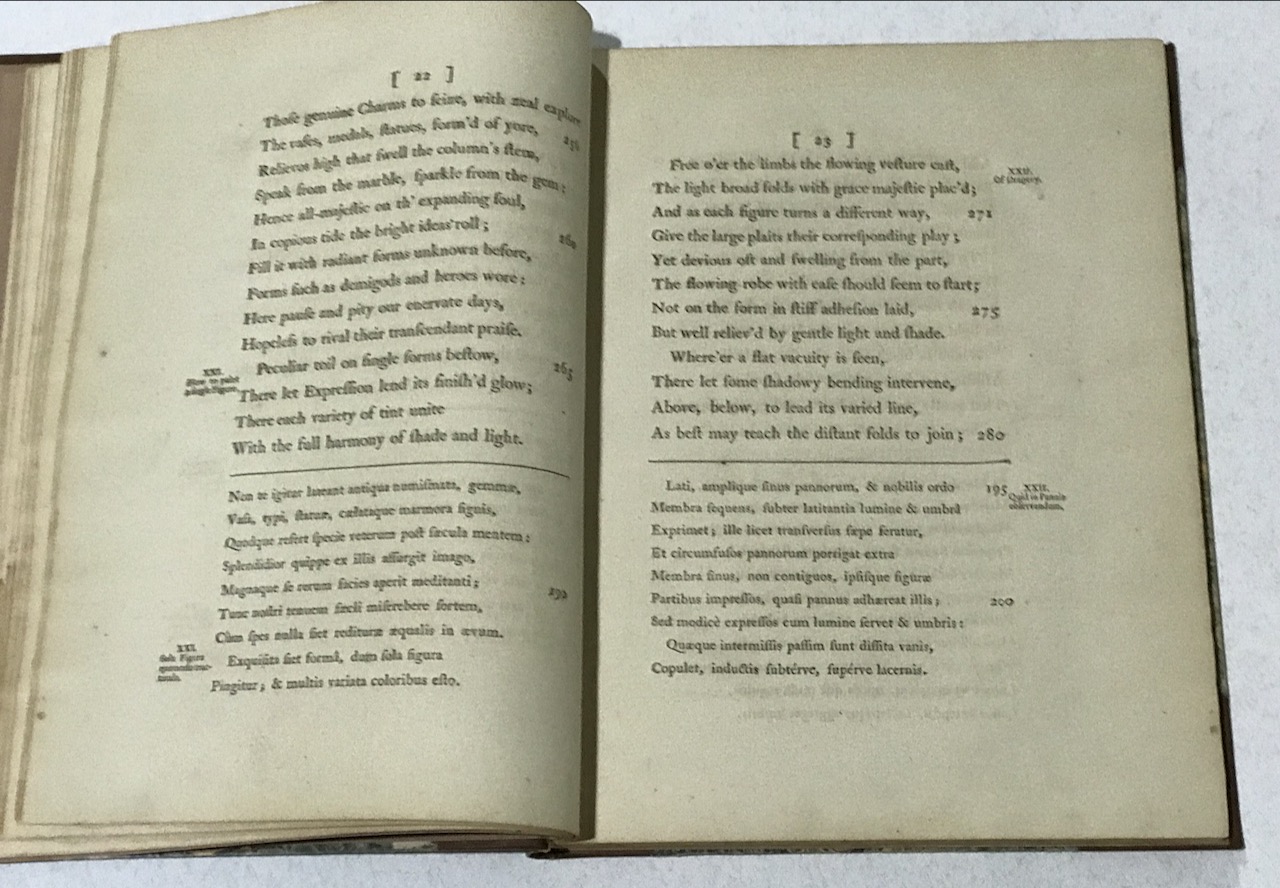 [ 22 ]
Thoſe genuine Charms to ſeize, with zeal explore
The vaſes, medals, ſtatues, form'd of yore, 256
Relievos high that ſwell the column's ſtem,
Speak from the marble, ſparkle from the gem;
Hence all-majeſtic on th' expanding ſoul,
In copious tide the bright ideas roll; 260
Fill it with radiant forms unknown before,
Forms ſuch as demigods and heroes wore:
Here pauſe and pity our enervate days,
Hopeleſs to rival their tranſcendant praiſe.
XXI.
How to paint
a ſingle Figure.
Peculiar toil on ſingle forms beſtow, 265
There let Expreſſion lend its finiſh'd glow;
There each variety of tint unite
With the full harmony of ſhade and light.
Non te igitur lateant antiqua numiſmata, gemmæ,
Vaſa, typi, ſtatuæ, cælataque marmora ſignis,
Quodque refert ſpecie veterum poſt ſæcula mentem:
Splendidior quippe ex illis aſſurgit imago,
Magnaque ſe rerum facies aperit meditanti;
Tunc noſtri tenuem ſæcli miſerebere ſortem, 192
Cùm ſpes nulla ſiet redituræ æqualis in ævum.
XXI.
Sola Figura
Exquiſita ſiet formâ, dum ſola figura
Pingitur; & multis variata coloribus eſto.
[ 23 ]
Free o'er the limbs the flowing veſture caſt,
XXII.
Of Drapery.
The light broad folds with grace majeſtic plac'd;
And as each figure turns a different way, 271
Give the large plaits their correſponding play;
Yet devious oft and ſwelling from the part,
The flowing robe with eaſe ſhould ſeem to ſtart;
Not on the form in ſtiff adheſion laid, 275
But well reliev'd by gentle light and ſhade.
Where'er a flat vacuity is ſeen,
There let ſome ſhadowy bending intervene,
Above, below, to lead its varied line,
As beſt may teach the diſtant folds to join; 280
Lati, amplique ſinus pannorum, & nobilis ordo 195
XXII.
Quid in Pannis
obſervandum.
Membra ſequens, ſubter latitantia lumine & umbrâ
Exprimet; ille licet tranſverſus ſæpe feratur,
Et circumfuſos pannorum porrigat extra
Membra ſinus, non contiguos, ipſiſque figuræ
Partibus impreſſos, quaſi pannus adhæreat illis; 200
Sed modicè expreſſos cum lumine ſervet & umbris:
Quæque intermiſſis paſſim ſunt diſſita vanis,
Copulet, inductis ſubtérve, ſupérve lacernis.